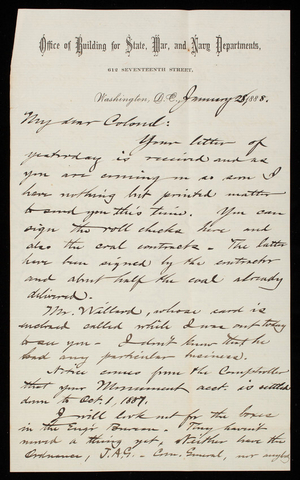 Office of Building for State, War, and Navy Departments,
612 SEVENTEENTH STREET,
Washington, D.C., January 28, 1888.
My dear Colonel:
Your letter of
yesterday is received and as
you are coming on so soon I
have nothing but printed matter
to send you this time. You can
sign the roll checks here and
also the coal contracts - The latter
have been signed by the contractor
and about half the coal already
delivered.
Mr. Willard, whose card is
enclosed called while I was out today
to see you - I don't know that he
had any particular business.
Notice comes from the Comptroller
that your Monument acct. is settled
down to Oct. 1, 1887.
I will look out for the boxes
in the Engr Bureau - They haven't
moved a thing yet, neither have the
Ordnance, J.A.G. - Com. General, nor